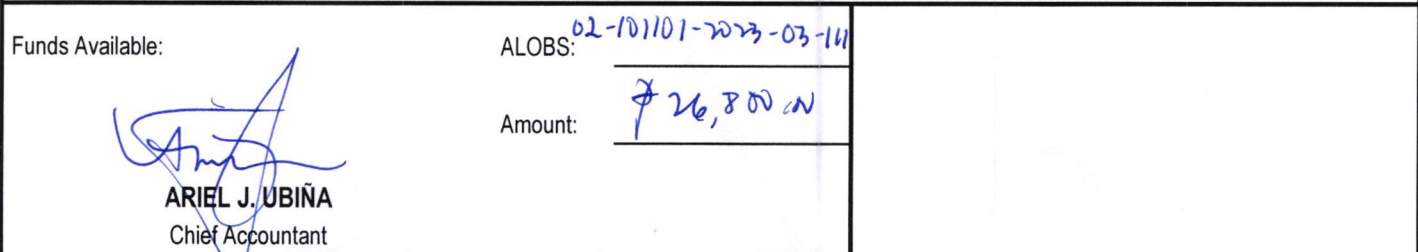 Funds Available:
ALOBS: 02-101101-2023-03-111
Amount: ₱ 26,800.00
ARIEL J. UBIÑA
Chief Accountant